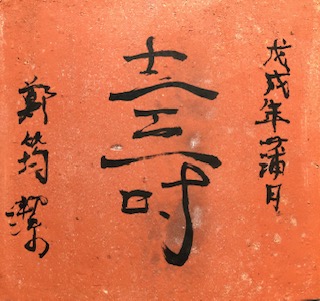 戊戌年蒲月
壽
鄭筠